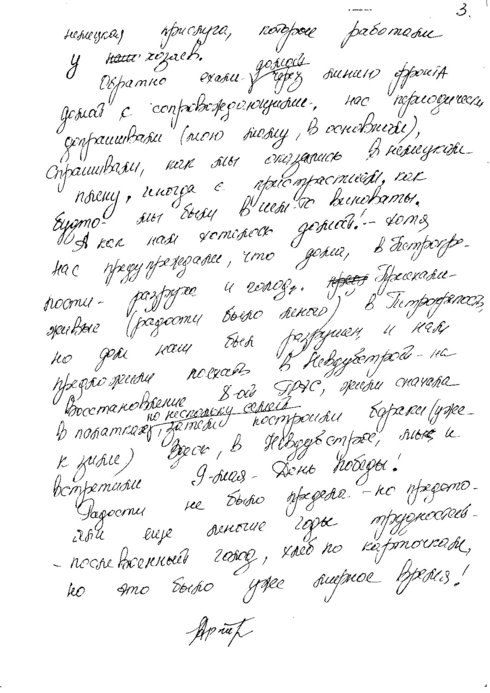 3.
немецкая прислуга, которые работали
у наш хозяев.
Обратно ехали домой через линию фронта
домой с сопровождающими, нас периодически
допрашивали (мою маму, в основном),
спрашивали, как мы оказались в немецком
плену, иногда с пристрастием, как
будто мы были в чем-то виноваты.
А как нам хотелось домой! - хотя
нас предупреждали, что дома, в Петрокре-
пости - разруха и голод. Приехали
живые (радости было много) в Петрокрепость,
но дом наш был разрушен и нам
предложили поехать в Невдубстрой - на
восстановление 8-ой ГРЭС, жили сначала
в палатках по нескольку семей, затем построили бараки (уже
к зиме) Здесь, в Невдубстрое, мы и
встретили 9-мая - День Победы!
Радости не было предела - но предсто-
яли еще многие годы трудностей -
- послевоенный голод, хлеб по карточкам,
но это было уже мирное время!